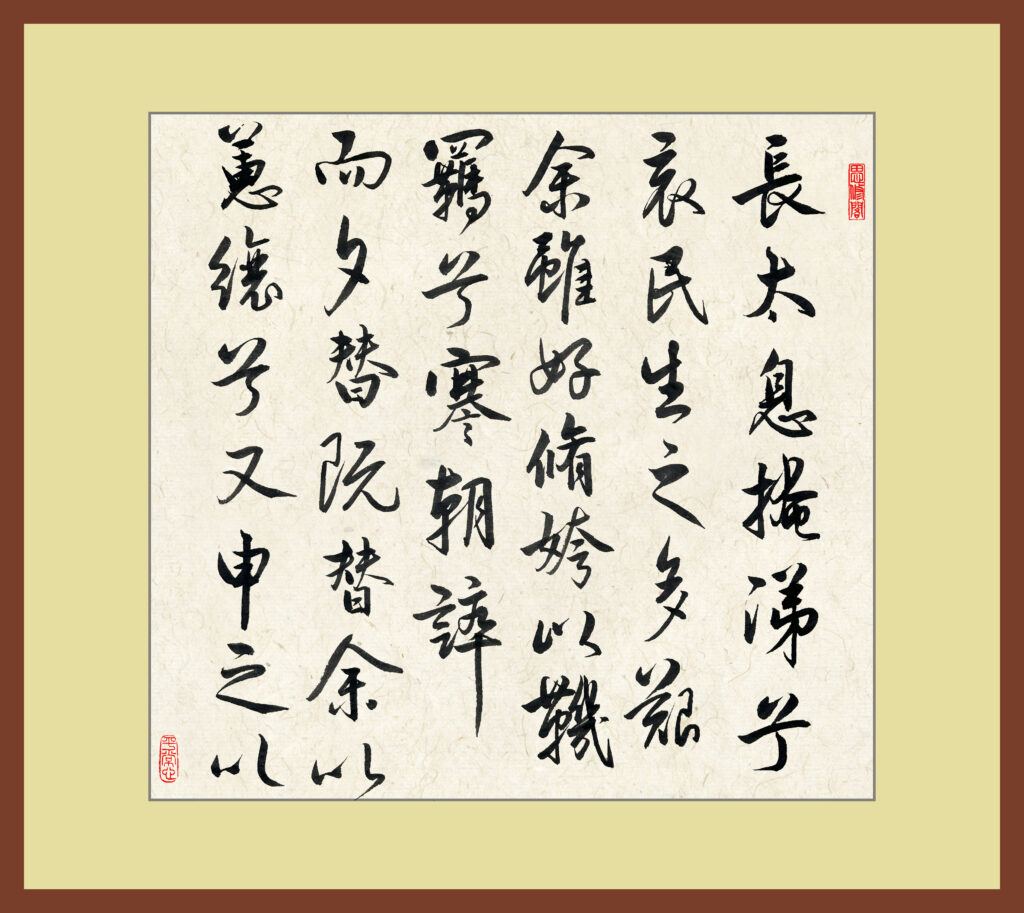 長太息掩涕兮
哀民生之多艱
余雖好脩姱以鞿
羈兮謇朝誶
而夕替既替余以
蕙纕兮又申之以
平常心